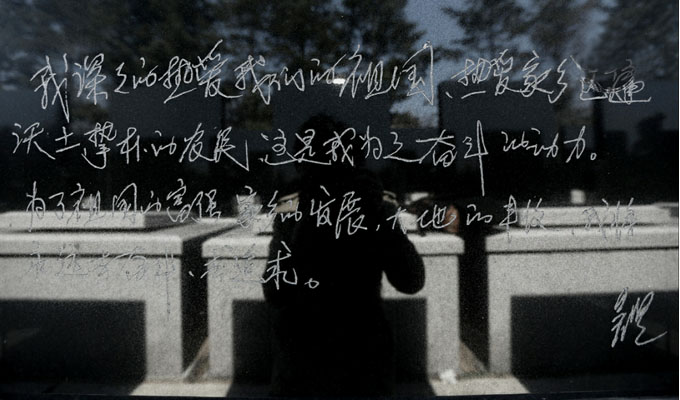 我深深的热爱我们的祖国、热爱家乡这遍
沃土挚朴的农民,这是我为之奋斗的动力。
为了祖国的富强 家乡的发展,大地的丰收,我将
永远去奋斗、去追求。